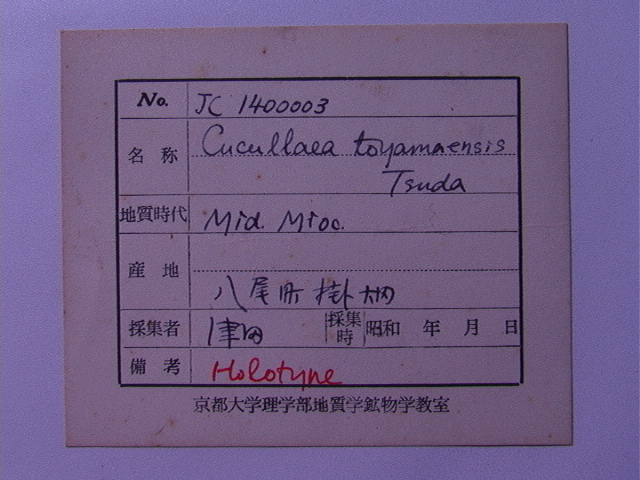 No. JC 1400003
名称 Cucullaea toyamaensis
Tsuda
地質時代 Mid. Mioc.
産地
八尾町 掛畑
採集者 津田 採集時 昭和 年 月 日
備考 Holotype
京都大学理学部地質学鉱物学教室